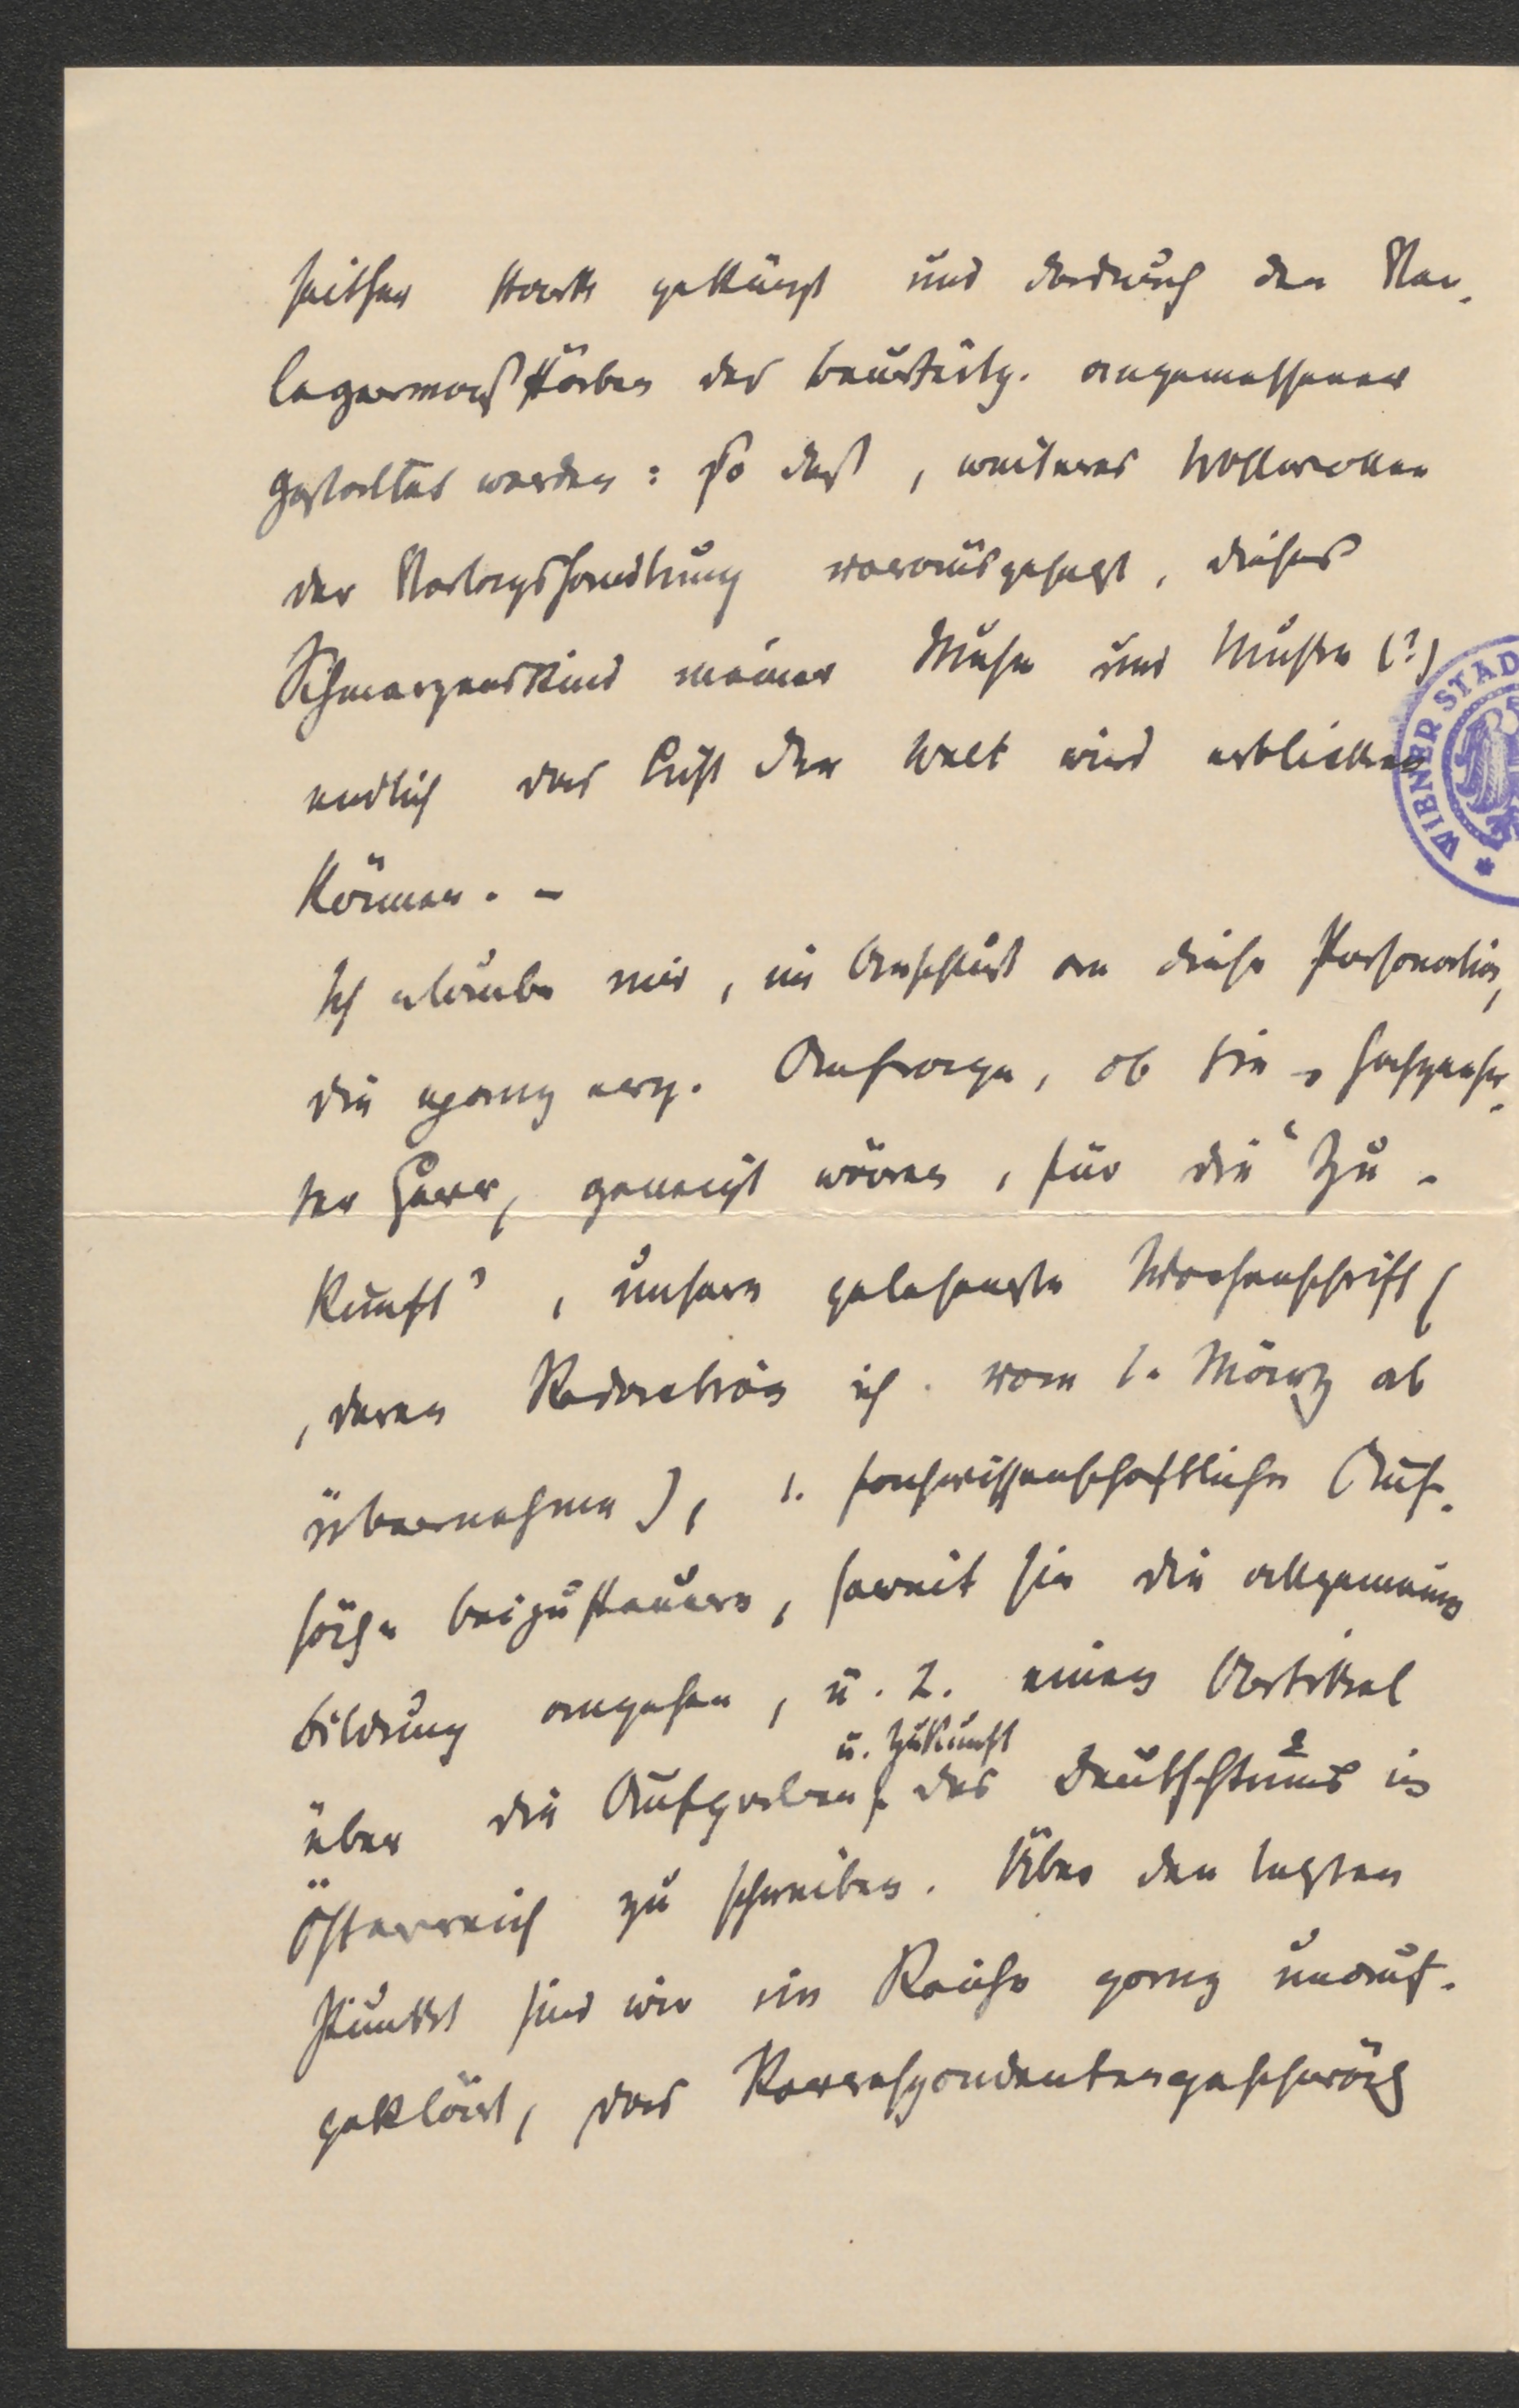 seither stark gekürzt und dadurch den Ver-
legermaßstäben der Beurteilg. angemessener
gestaltet worden: so daß, weiteres Wollwollen
der Verlagshandlung vorausgesetzt, dieses
Schmerzenskind meiner Muse und Muße (?)
endlich das Licht der Welt wird erblicken
können. -
Ich erlaube mir, im Anschluß an diese Personalien,
die ganz erg. Anfrage, ob Sie, hochgeehr-
ter Herr, geneigt wären, für die "Zu-
kunft", unsere gelesenste Wochenschrift (
, deren Redaction ich vom 1. März ab
übernehme), 1. fachwissenschaftliche Auf-
sätze beizusteuern, soweit sie die allgemeine
Bildung angehen, u. 2. einen Artikel
u. Zukunft
über die Aufgaben des Deutschtums in
Österreich zu schreiben. Über den letzten
Punkt sind wir im Reiche ganz unauf-
geklärt, das Korrespondentengeschwätz
WIENER STAD